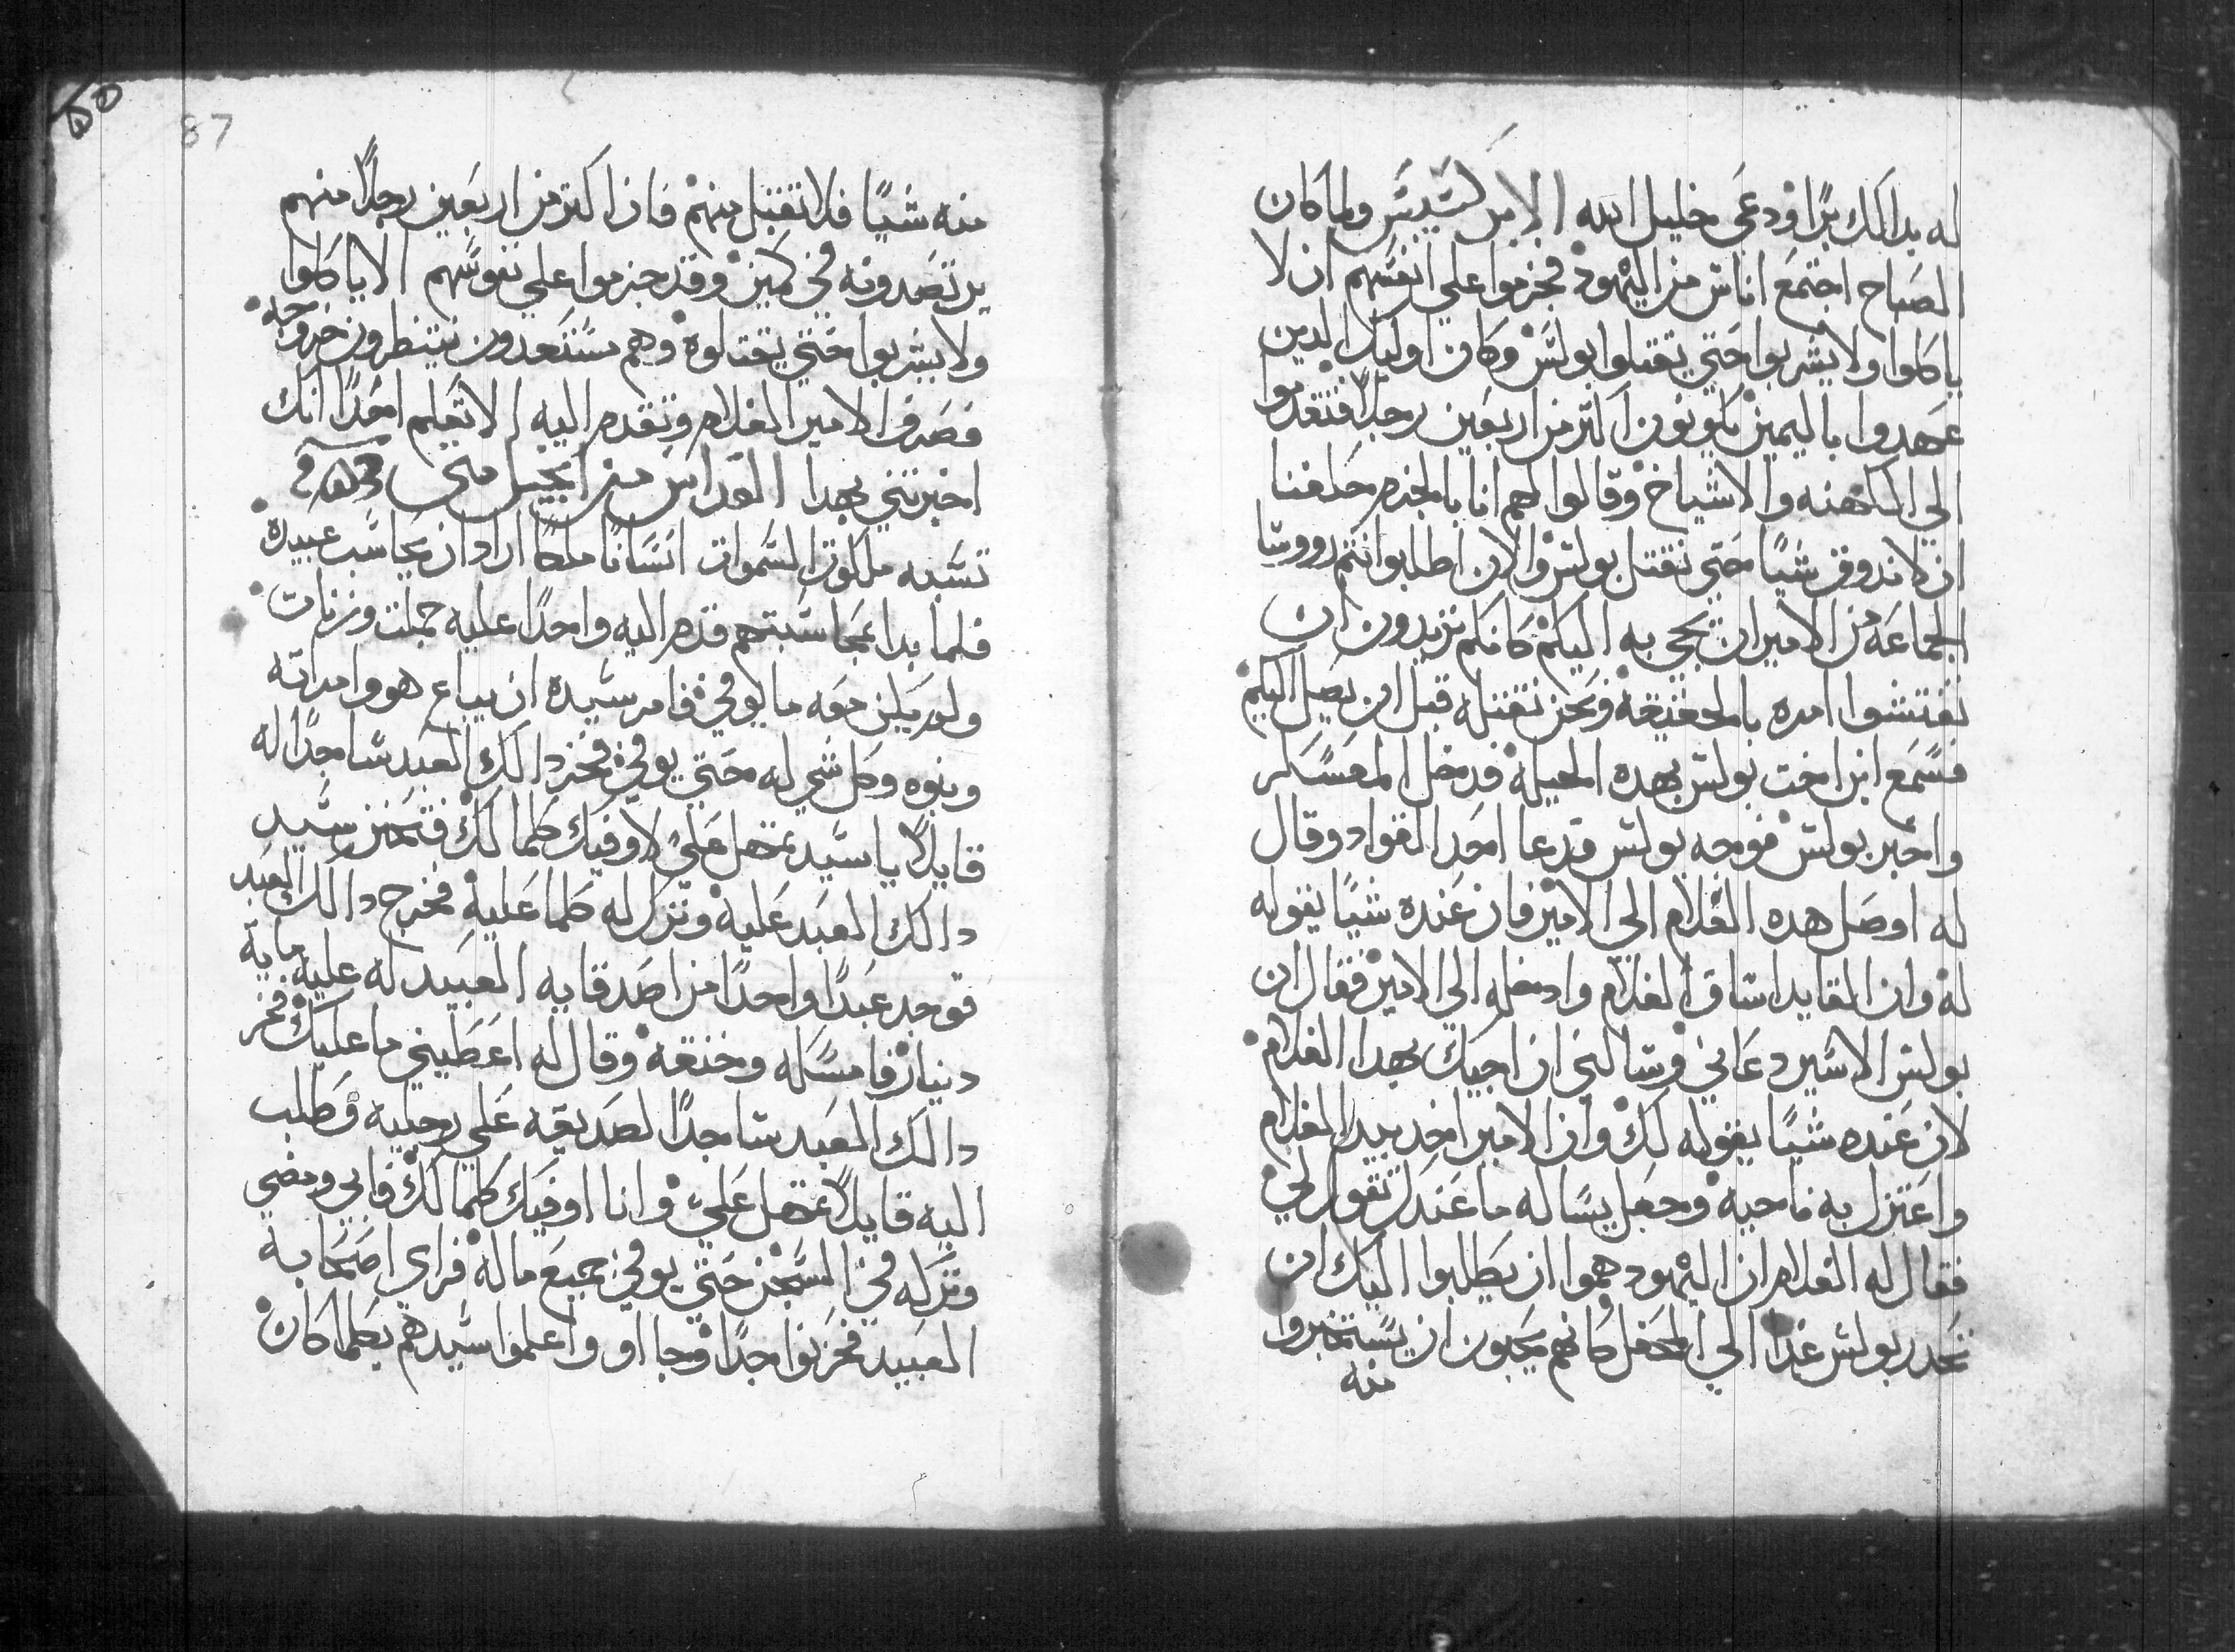 له بدالك برًا ودعي خليل الله الابركسيس ولما كان
الصباح اجتمع اناس من اليهود فحزموا علي انفسهم ان لا
ياكلوا ولا يشربوا حتي يقتلوا بولس وكان اوليك الدين
عهدوا باليمين يكونون اكتر من اربعين رجلًا فتقدموا
الي الكهنه والاشياخ وقالوا لهم انا بالجزم حلفنا
ان لا ندوق شيًا حتي نقتل بولس والان اطلبوا انتم وروسا
الجماعه من الامير ان يجي به اليكم كانكم تريدون ان
تفتشوا امره بالحقيقة ونحن نقتله قبل ان يصل اليكم
فسمع ابن اخت بولس بهده الحيلة فدخل المعسكر
واخبر بولس فوجه بولس فدعا احد القواد وقال
له اوصل هده الغلام الي الامير فان عنده شيًا يقوله
له وان القايد اساق الغلام وادخله الي الامير فقال ان
بولس الاسير دعاني وسالني ان اجيك بهدا الغلام
لان عنده شيًا يقوله لك وان الامير اخد بيد الغلام
واعتزل به ناحيه وجعل يساله ما عندك تقول لي
فقال له الغلام ان اليهود هموا ان يطلبوا اليك ان
تحدر بولس غدا الي المحفل كانهم يحبون ان يستخبروا
منه
87
منه شيًا فلا تقبل منهم فان اكتر من اربعين رجلًا منهم
يرتصدونه في كمين وقد حزموا علي نفوسهم الا ياكلوا
ولا يشربوا حتي يقتلوه وهم مستعدون ينتظرون خروجه
فصرف الامير الغلام وتقدم اليه الا تعلم احدًا انك
اخبرتني بهدا القداس من انجيل متي
تشبه ملكوت السموات انسانًا ملكًا اراد ان يحاسب عبيده
فلما بدا بمحاسبتهم قدم اليه واحدًا عليه جملت وزنات
ولم يكن معه ما يوفي فامر سيده ان يباع هو وامراته
وبنوه وكل شي له حتي يوفي فخر دالك العبد ساجدًا له
قايلًا يا سيد تمهل علي لاوفيك كلما لك فتحنن سيد
دالك العبد عليه وترك له كلما عليه فخرج دالك العبد
فوجد عبدًا واحدًا من اصدقايه العبيد له عليه ماية
دينار فامسكه وخنقه وقال له اعطيني ما عليك فخر
دالك العبد ساجدًا لصديقه علي رجليه وطلب
اليه قايلًا تمهل علي وانا اوفيك كلما لك فابي ومضي
وتركه في السجن حتي يوفي جميع ماله فراي اصحابه
العبيد فحزنوا جدًا وجااو واعلموا سيدهم بكلما كان